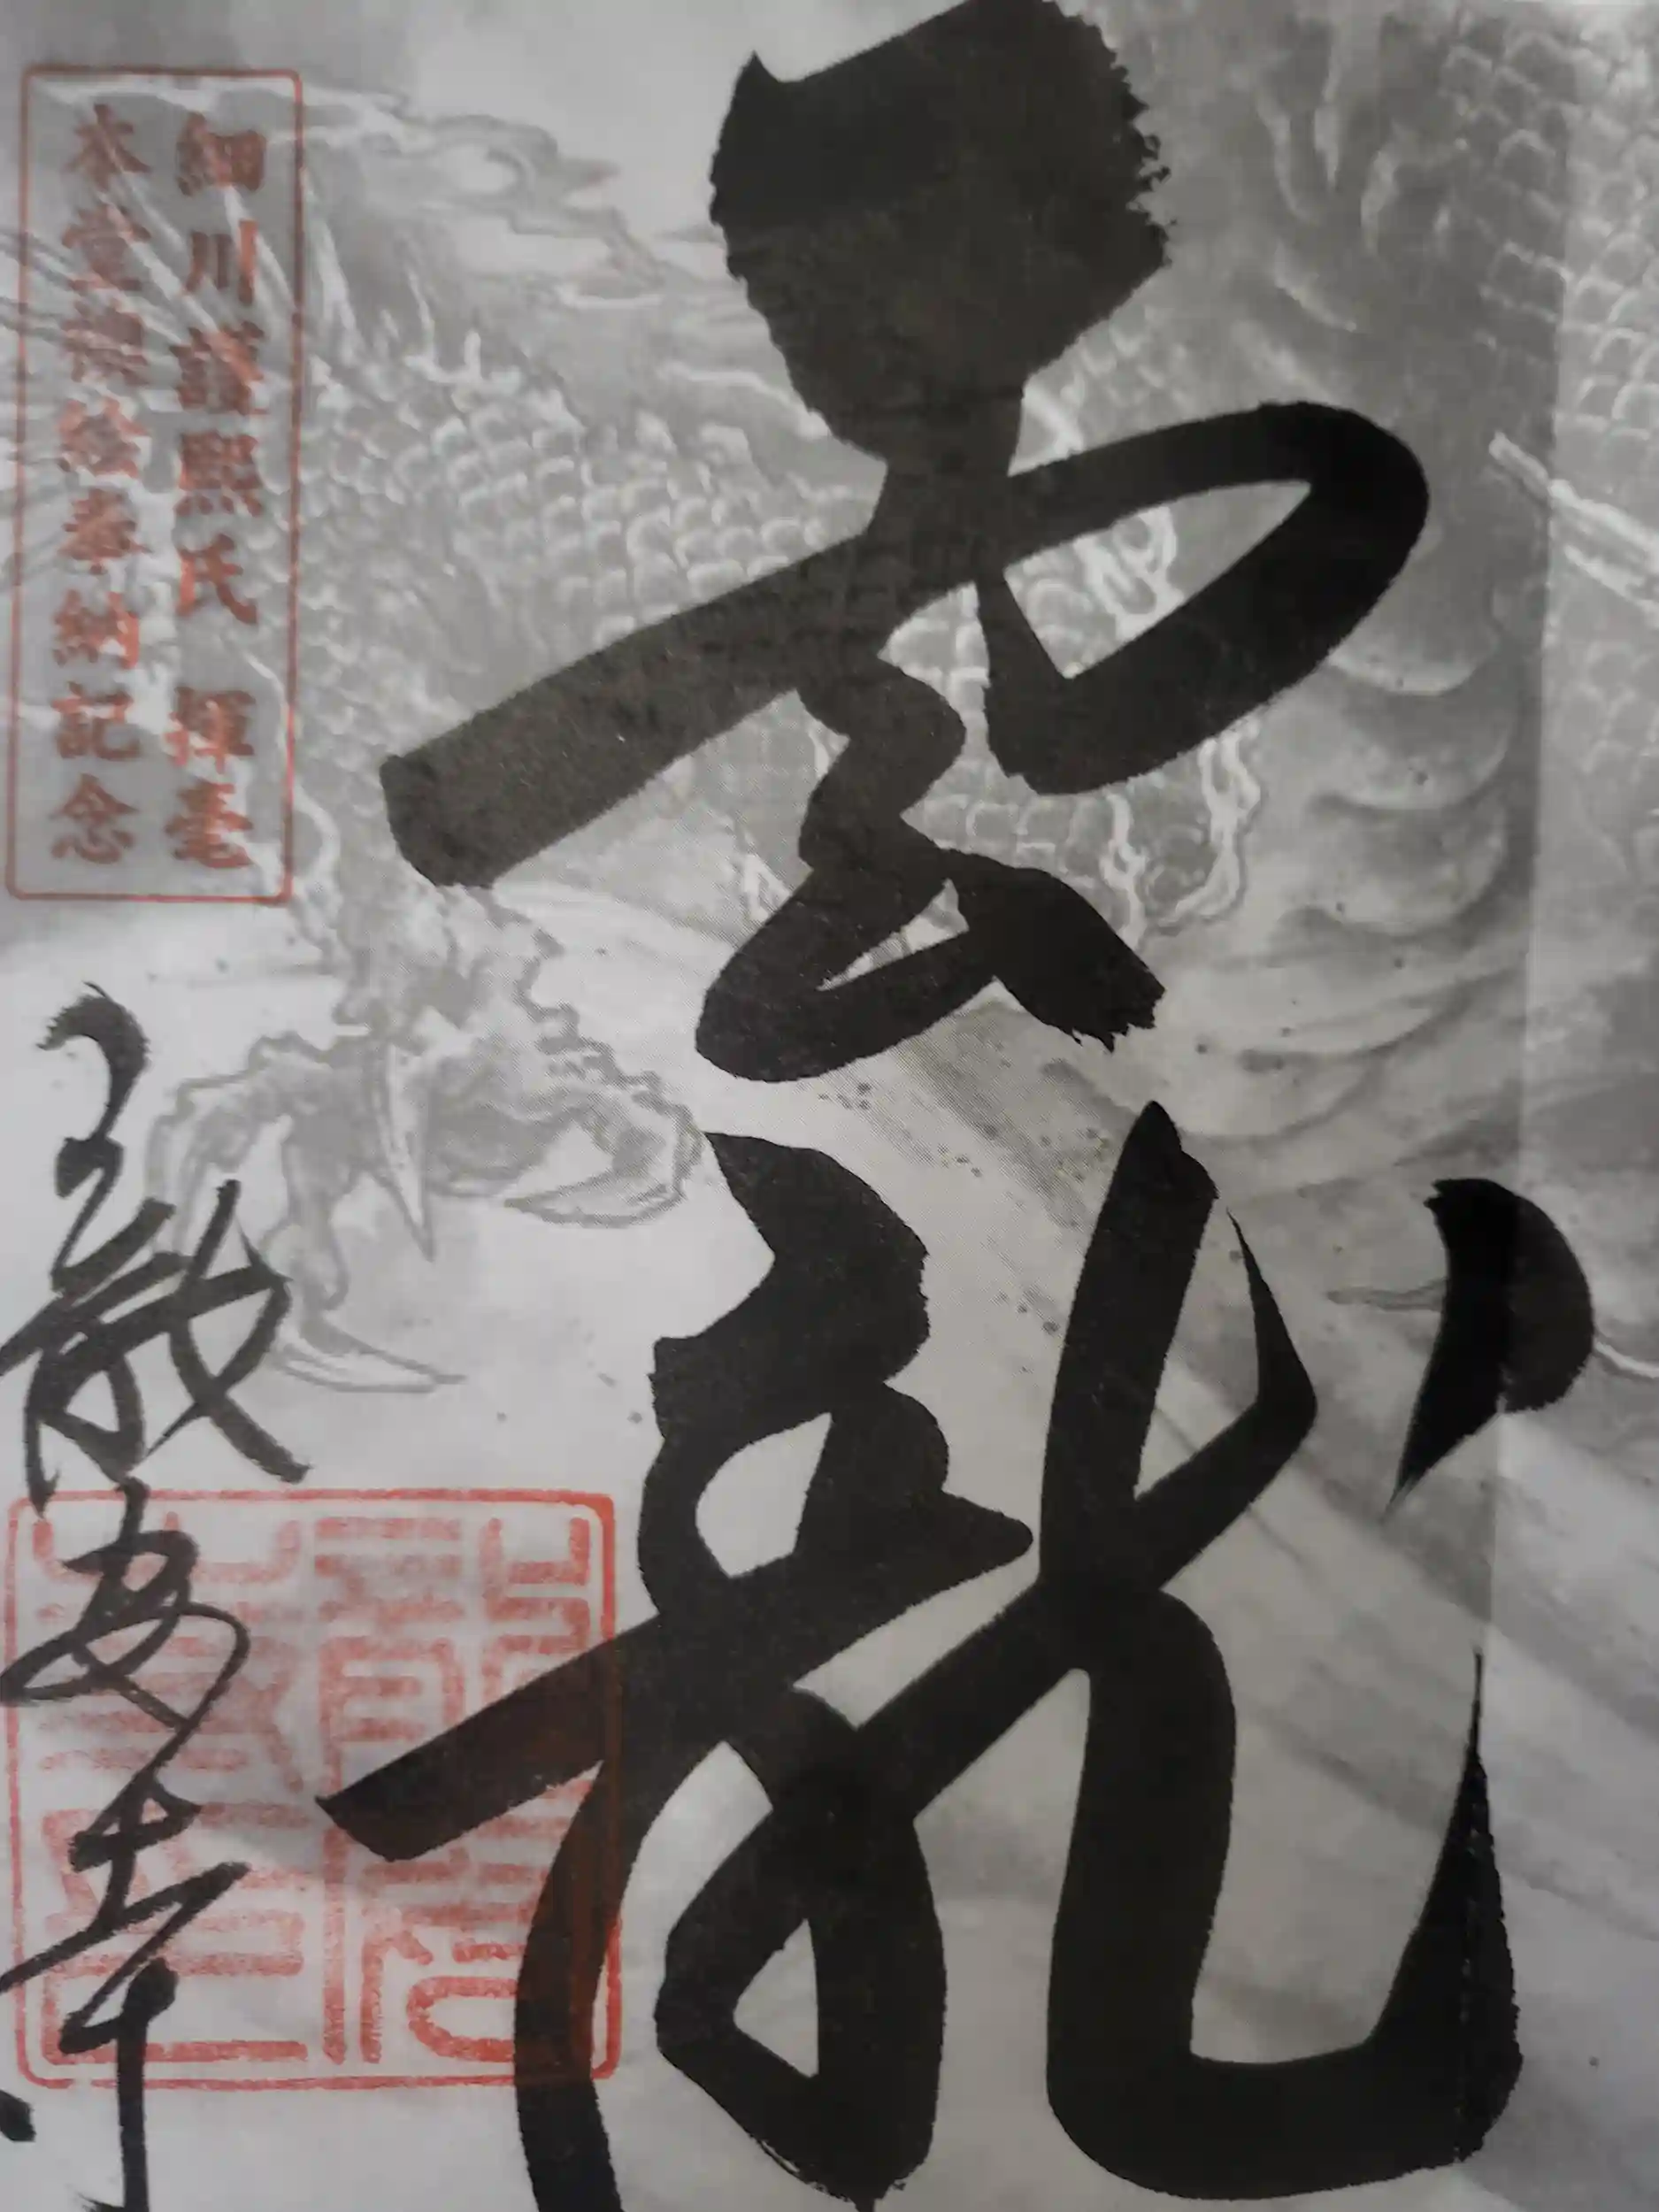 雲龍
細川護熙氏 揮毫
本堂襖絵奉納記念
龍安寺